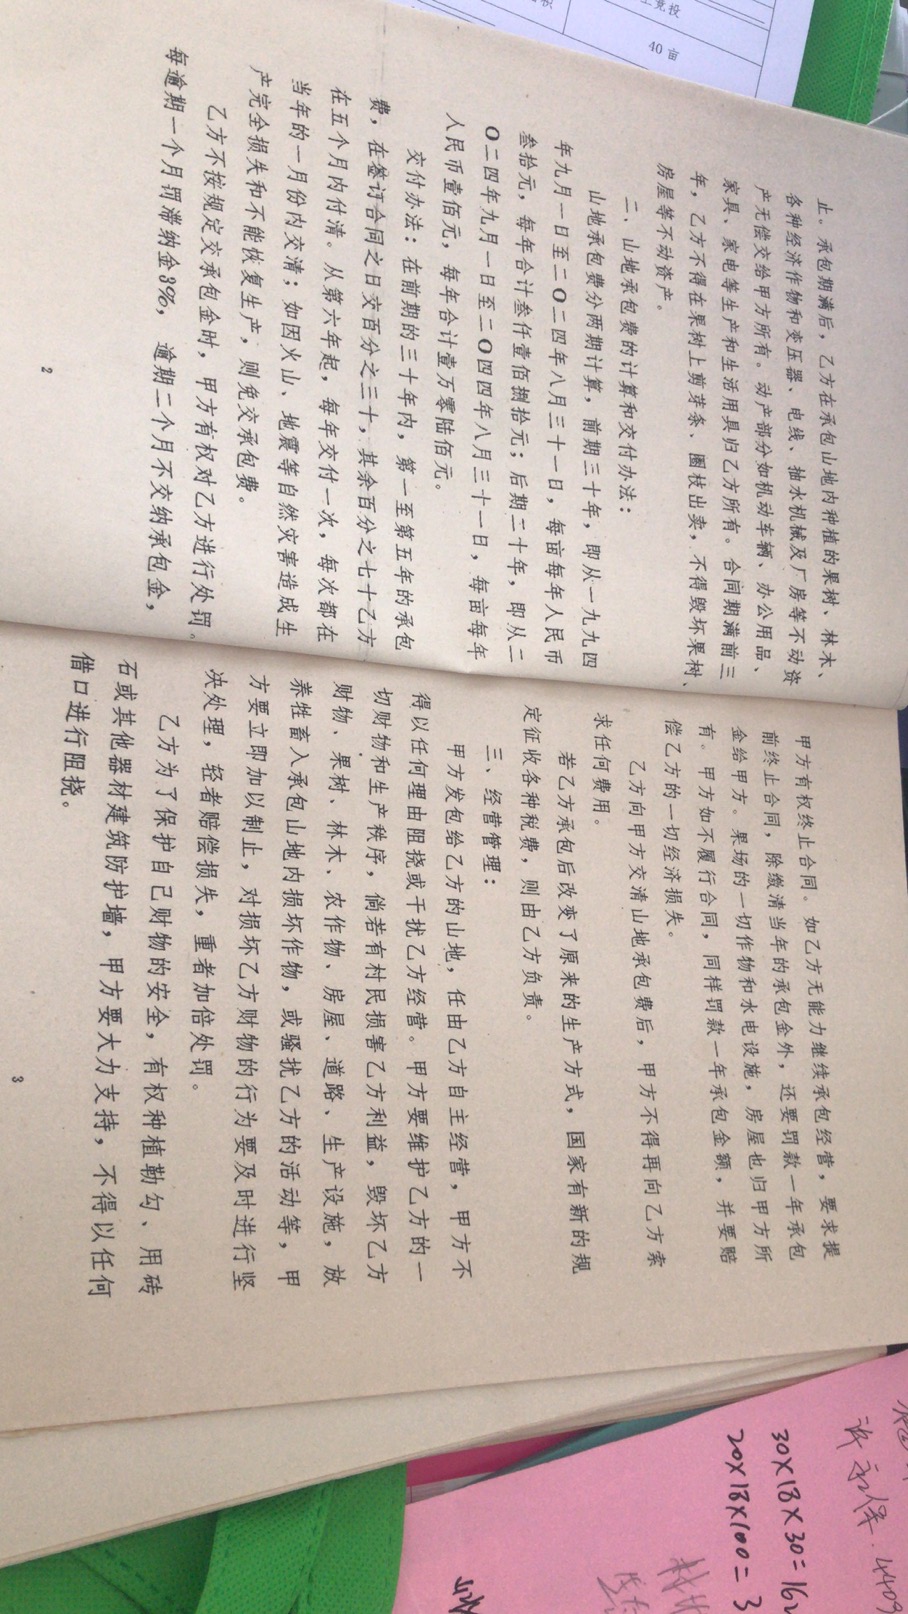 止。承包期满后，乙方在承包山地内种植的果树、林木、
各种经济作物和变压器、电线、抽水机械及厂房等不动资
产无偿交给甲方所有。动产部分如机动车辆、办公用品、
家具、家电等生产和生活用具归乙方所有。合同期满前三
年，乙方不得在果树上剪芽条、圈枝出卖，不得毁坏果树、
房屋等不动资产。
二、山地承包费的计算和交付办法：
山地承包费分两期计算，前期三十年，即从一九九四
年九月一日至二O二四年八月三十一日，每亩每年人民币
叁拾元，每年合计叁仟壹佰捌拾元；后期二十年，即从二
O二四年九月一日至二O四四年八月三十一日，每亩每年
人民币壹佰元，每年合计壹万零陆佰元。
交付办法：在前期的三十年内，第一至第五年的承包
费，在签订合同之日交百分之三十，其余百分之七十乙方
在五个月内付清。从第六年起，每年交付一次，每次都在
当年的一月份内交清；如因火山、地震等自然灾害造成生
产完全损失和不能恢复生产，则免交承包费。
乙方不按规定交承包金时，甲方有权对乙方进行处罚。
每逾期一个月罚滞纳金3%，逾期二个月不交纳承包金，
2
甲方有权终止合同。如乙方无能力继续承包经营，要求提
前终止合同，除缴清当年的承包金外，还要罚款一年承包
金给甲方。果场的一切作物和水电设施，房屋也归甲方所
有。甲方如不履行合同，同样罚款一年承包金额，并要赔
偿乙方的一切经济损失。
乙方向甲方交清山地承包费后，甲方不得再向乙方索
求任何费用。
若乙方承包后改变了原来的生产方式，国家有新的规
定征收各种税费，则由乙方负责。
三、经营管理：
甲方发包给乙方的山地，任由乙方自主经营，甲方不
得以任何理由阻挠或干扰乙方经营。甲方要维护乙方的一
切财物和生产秩序，倘若有村民损害乙方利益，毁坏乙方
财物、果树、林木、农作物、房屋、道路、生产设施，放
养牲畜入承包山地内损坏作物，或骚扰乙方的活动等，甲
方要立即加以制止，对损坏乙方财物的行为要及时进行坚
决处理，轻者赔偿损失，重者加倍处罚。
乙方为了保护自己财物的安全，有权种植勒勾、用砖
石或其他器材建筑防护墙，甲方要大力支持，不得以任何
借口进行阻挠。
3
40 亩
30×18×30=162
20×18×100=3
4409